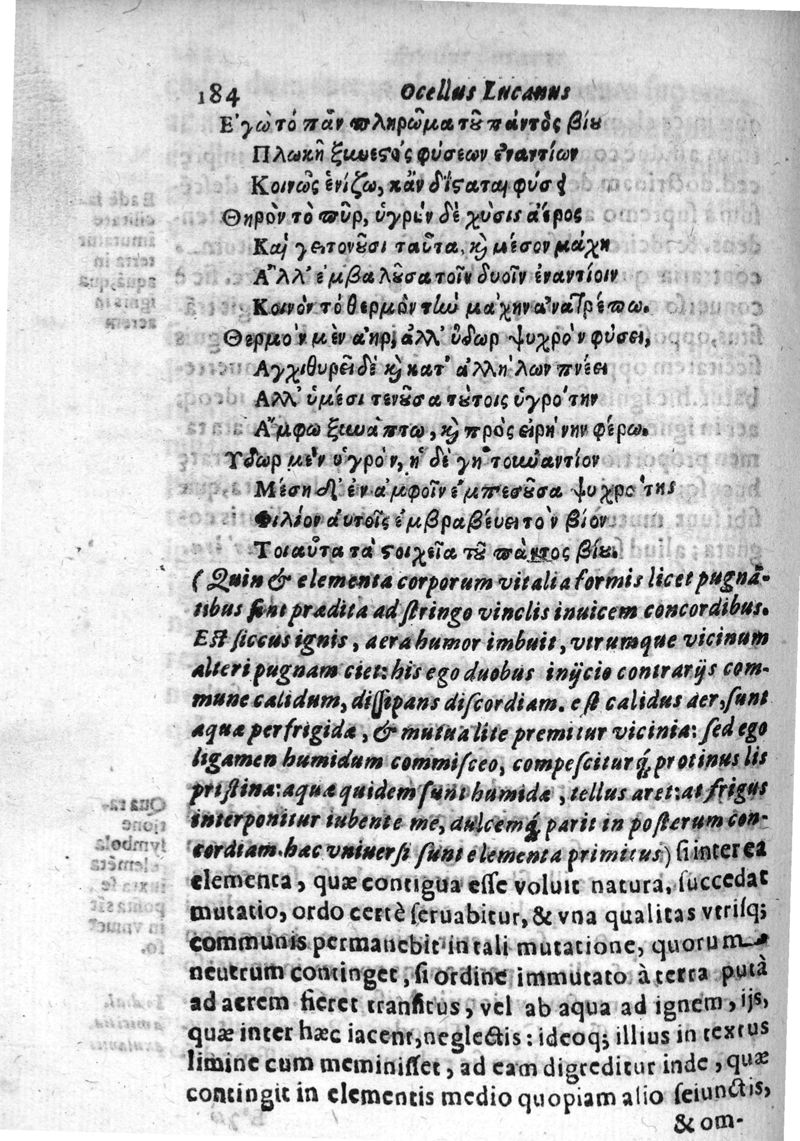 184 Ocellus Lucanus
Ε᾽γὼ τὸ πᾶν πλήρωμα τοῦ παντὸς βίου
Πλοκῇ ξυνετὸς φύσεων ἐναντίων
Κοινῶς ἑνίζω, κἂν διΐσταται φύσει
Θηρὸν τὸ πῦρ, ὑγρὴν δὲ χύσις ἀέρος
Καὶ γειτονοῦσι ταῦτα, καὶ μέσον μάχη
Α᾽λλ᾽ ἐμβαλοῦσα τοῖν δυοῖν ἐναντίοιν
Κοινὸν τὸ θερμὸν τὴν μάχην ἀνατρέπω.
Θερμὸν μὲν ἀὴρ, ἀλλ᾽ ὕδωρ ψυχρὸν φύσει,
Αγχιθυρεῖ δὲ καὶ κατ᾽ ἀλλήλων πνέει
Αλλ᾽ ὑμέσι τενοῦσα τούτοις ὑγρότην
Α῎μφω ξυνάπτω, καὶ πρὸς εἰρήνην φέρω.
Υδωρ μὲν ὑγρὸν, ἡ δὲ γῆ τοὐναντίον
Μέση δ᾽ ἐν ἀμφοῖν ἐμπεσοῦσα ψυχρότης
Φιλίον αὐτοῖς ἐμβραβεύει τὸν βίον
Τοιαῦτα τὰ στοιχεῖα τοῦ πάντος βίου.
(Quin & elementa corporum vitalia formis licet pugnã-
tibus sint prædita ad stringo vinclis inuicem concordibus.
Est siccus ignis, aera humor imbuit, vtrumque vicinum
alteri pugnam ciet: his ego duobus inijcio contrarijs com-
mune calidum, dissipans discordiam. est calidus aer, sunt
aquæ perfrigidæ, & mutua lite premitur vicinia: sed ego
ligamen humidum commisceo, compescitur q́; protinus lis
pristina: aquæ quidem sunt humidæ, tellus aret: at frigus
interponitur iubente me, dulcemq́; parit in posterum con-
cordiam. hæc vniuersi sunt elementa primitus) si inter ea
elementa, quæ contigua esse voluit natura, succedat
mutatio, ordo certè seruabitur, & vna qualitas vtrisq;
communis permanebit in tali mutatione, quorum
neutrum continget, si ordine immutato à terra putà
ad aerem fieret transitus, vel ab aqua ad ignem, ijs,
quæ inter hæc iacent, neglectis: ideoq; illius in textus
limine cum meminisset, ad eam digreditur inde, quæ
contingit in elementis medio quopiam alio seiunctis,
& om-